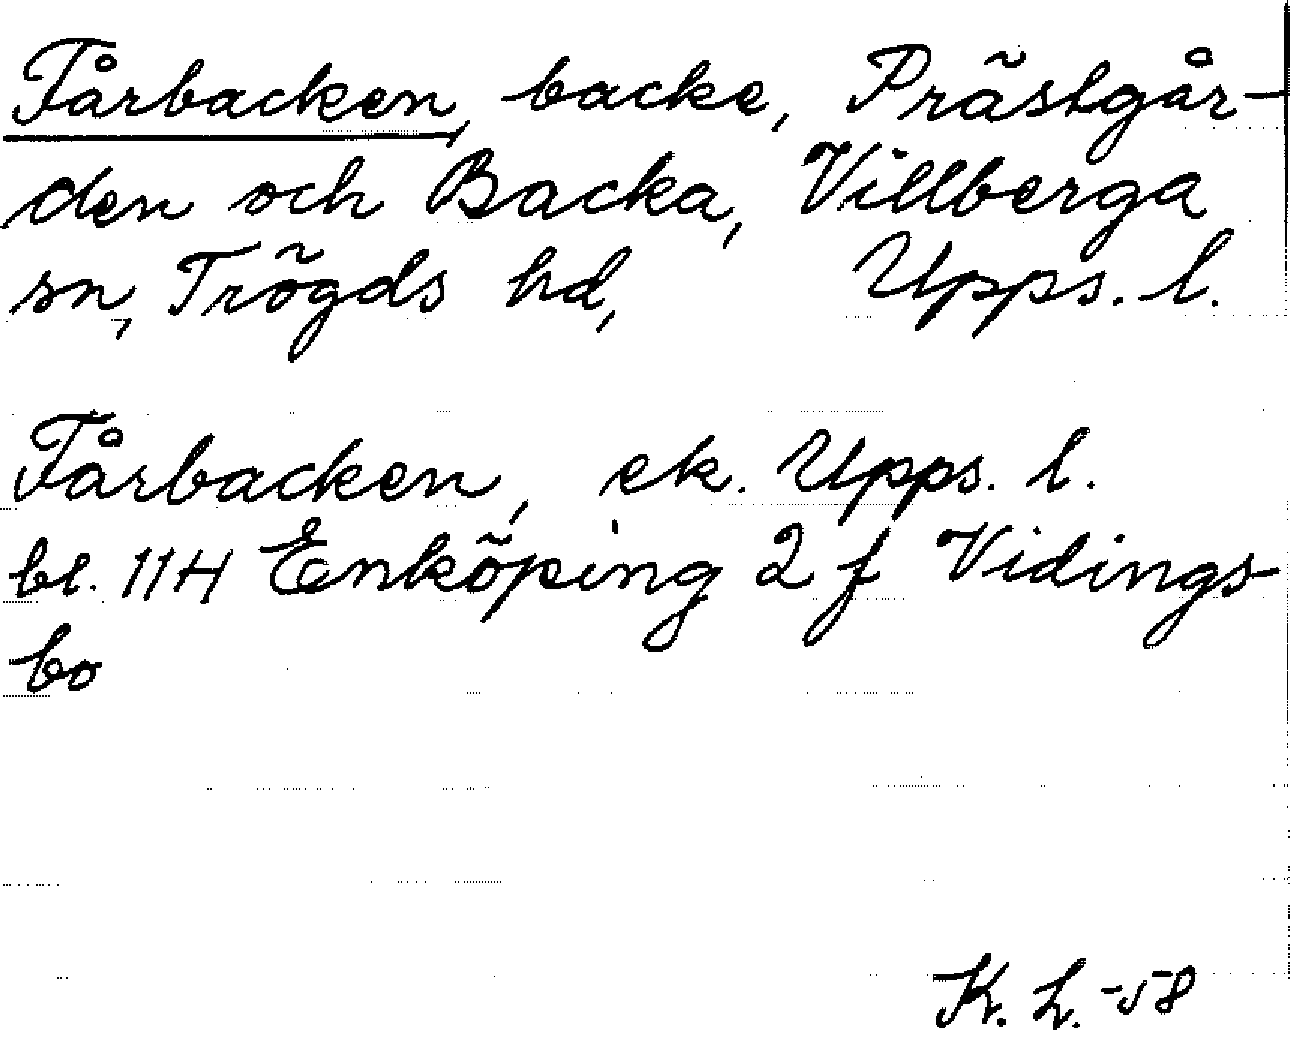 Fårbacken, backe, Prästgår-
den och Backa, Villberga
sn, Trögds hd, Upps. l.
Fårbacken, ek. Upps. l.
bl. 114 Enköping 2 f Vidings-
bo
K. L. -58